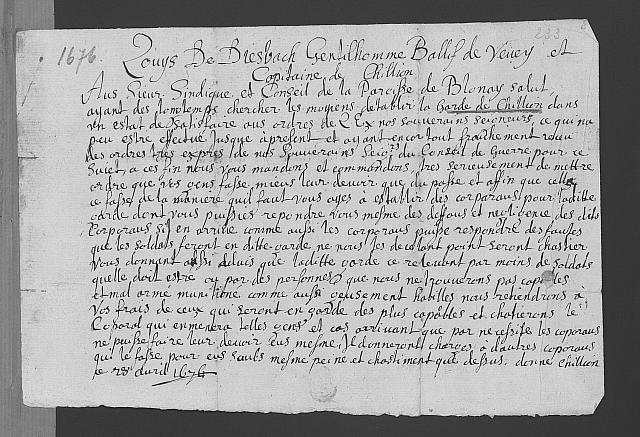 233
1676.
Louys De Diesbach Gentilhomme Ballif de Vevey et
Capitaine de Chillion
Aus Sieur Sindique et Conseil de la Paroisse de Blonay salut,
ayant des longtemps chercher les moyens detablir la Garde de Chillion dans
un estat de satisfaire aus ordres de L'Ex nos souverains seigneurs, ce qui na
peu estre efectué jusque à present et ayant encor tout fraichement receu
des ordres tres expres de nos Souverains Seig.rs du Conseil de Guerre pour ce
Suiet, a ces fin nous vous mandons et commandons tres serieusement de mettre
ordre que vos gens fasse mieus leur devoir que du passe et affin que cella
ce fasse de la maniere quil faut vous ayes à establir des corporaus pour laditte
garde dont vous puissies repondre vous mesme des defauts et negligence des dits
Corporaus sil en arrive comme aussi les corporaus puisse respondre des fautes
que les soldats feront en ditte garde ne nous les decelant point seront chastier
Vous donnant aussi advis que laditte garde ce relevant par moins de soldats
quelle doit estre ou par des personnes que nous ne trouverons pas capables
et mal arme munitione comme aussi peusement habilles nous retiendrons à
vos frais de ceux qui seront en garde des plus capables et chatierons le
Coporal qui en menera telles gens et cas arrivant que par necessite les coporaus
ne puisse faire leur devoir eus mesme, Il donneront charges à dautres coporaus
qui le fasse pour eus soubs mesme peine et chastiment que dessus. donne Chillion
le Avril 1676